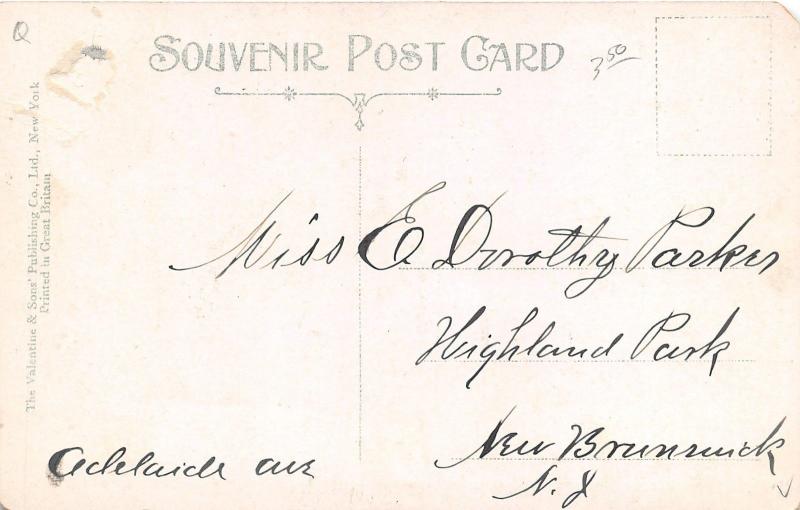 Q
SOUVENIR POST CARD
3 50
The Valentine & Sons' Publishing Co., Ltd., New York
Printed in Great Britain
Miss E Dorothy Parker
Highland Park
New Brunswick
N. J
Adelaide ave